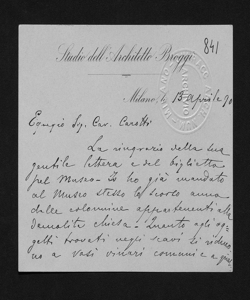 841
Studio dell'Architetto Broggi
Milano, li 13 Aprile 90
Egregio Sig. Cav. Carotti
La ringrazio della sua
gentile lettera e del biglietto
pel Museo. Io ho già mandato
al Museo stesso lo scorso anno
delle colonnine appartenenti alla
demolita chiesa. Quanto agli og-
getti trovati negli scavi si riduco-
no a vasi vinari comuni e